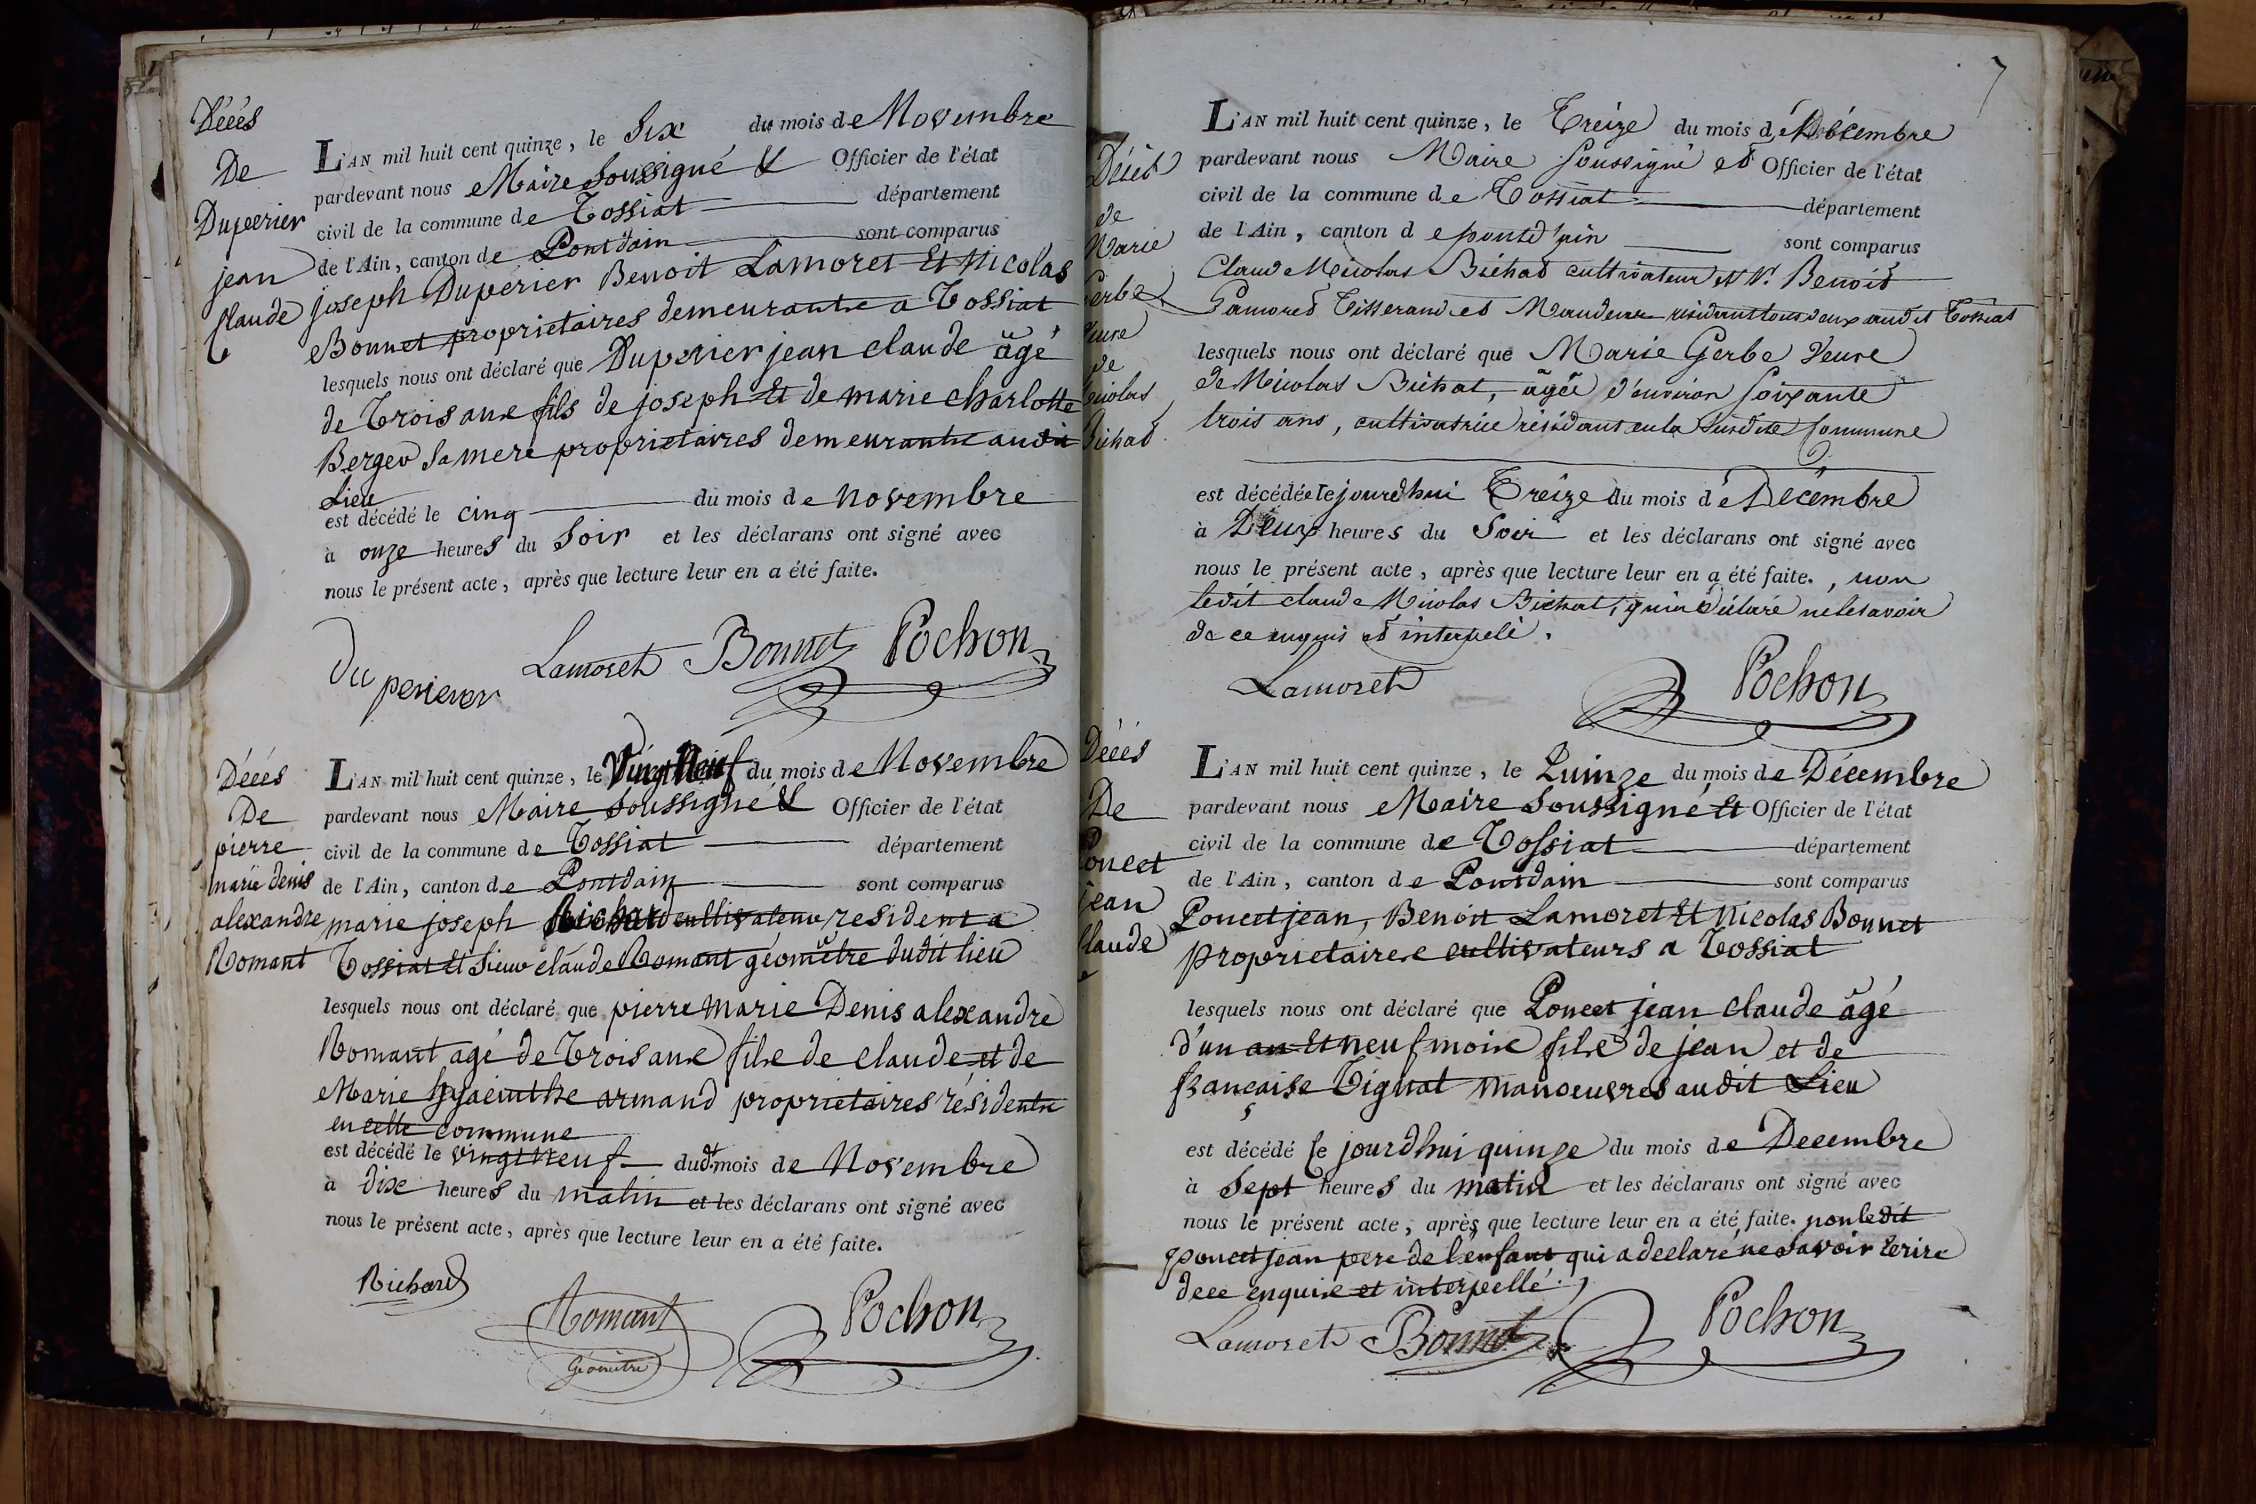 Décés
De
Duperier
jean
Claude
L'AN mil huit cent quinze, le Six du mois de Novembre
pardevant nous Maire Soussigné & Officier de l'état
civil de la commune de Tossiat département
de l'Ain, canton de Pontdain sont comparus
joseph Dupérier Benoit Lamoret Et Nicolas
Bonnet proprietaires demeurants a Tossiat
lesquels nous ont déclaré que Duperier jean claude âgé
de Trois ans fils de joseph Et de marie charlotte
Berger Sa mere proprietaires demeurants audit
Lieu
est décédé le cinq du mois de novembre
à onze heures du Soir et les déclarans ont signé avec
nous le présent acte, après que lecture leur en a été faite.
Du perier Lamoret Bonnet Pochon
Décés
De
pierre
marie denis
alexandre
Romant
L'AN mil huit cent quinze, le Vingt Neuf du mois de Novembre
pardevant nous Maire Soussigné & Officier de l'état
civil de la commune de Tossiat département
de l'Ain, canton de Pontdain sont comparus
marie joseph Richard cultivateur resident a
Tossiat Et Sieur claude Romant géomêtre dudit lieu
lesquels nous ont déclaré que pierre Marie Denis alexandre
Romant agé de Trois ans fils de claude et de
Marie hyacinthe armand proprietaires résidents
en cette commune
est décédé le vingt Neuf dudt mois de Novembre
à dix heures du matin et les déclarans ont signé avec
nous le présent acte, après que lecture leur en a été faite.
Richard Romant Pochon
Géomêtre
7
Décès
de
Marie
Gerbe
Veuve
de
Nicolas
Bichat
L'AN mil huit cent quinze, le Treize du mois de Décembre
pardevant nous Maire Soussigné et Officier de l'état
civil de la commune de Tossiat département
de l'Ain, canton de pontd'ain sont comparus
Claude Nicolas Bichat cultivateur et Benoit
Lamoret Tisserand et residant tous deux audit Tossiat
lesquels nous ont déclaré que Marie Gerbe Veuve
de Nicolas Bichat, agée d'environ Soixante
trois ans, cultivatrice résidant en la Susdite Commune
est décédée le jourdhui Treize du mois de Décembre
à Deux heures du Soir et les déclarans ont signé avec
nous le présent acte, après que lecture leur en a été faite., non
ledit claude Nicolas Bichat, qui a déclaré ne le savoir
de ce enquis et interpelé.
Lamoret Pochon
Décés
De
Poncet
jean
Claude
L'AN mil huit cent quinze, le Quinze du mois de Décembre
pardevant nous Maire Soussigné Et Officier de l'état
civil de la commune de Tossiat département
de l'Ain, canton de Pontdain sont comparus
Poncet jean, Benoit Lamoret Et Nicolas Bonnet
proprietaires cultivateurs a Tossiat
lesquels nous ont déclaré que Poncet jean claude âgé
d'un an Et neuf mois fils de jean et de
française Tignat manoeuvres audit Lieu
est décédé le jourdhui quinze du mois de Decembre
à Sept heures du matin et les déclarans ont signé avec
nous le présent acte, après que lecture leur en a été faite. non ledit
poncet jean pere de l'enfant qui a declaré ne Savoir Ecrire
de ce enquis et interpellé.
Lamoret Bonnet Pochon